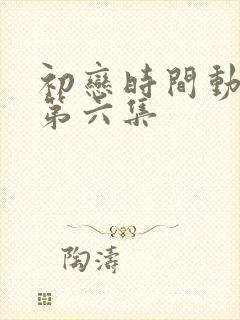 初戀時間動
第六集
陶濤